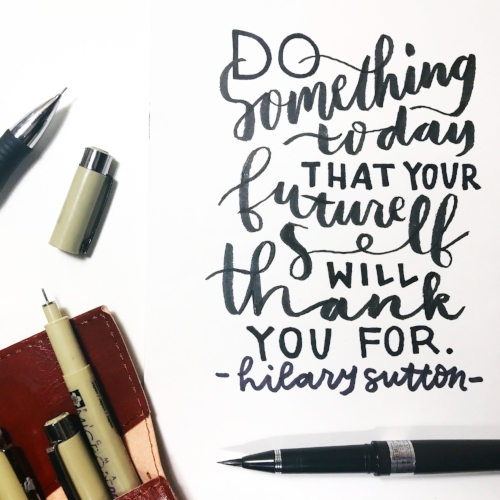 DO
Something
today
THAT YOUR
future
Self
WILL
thank
YOU FOR.
-hilary sutton-